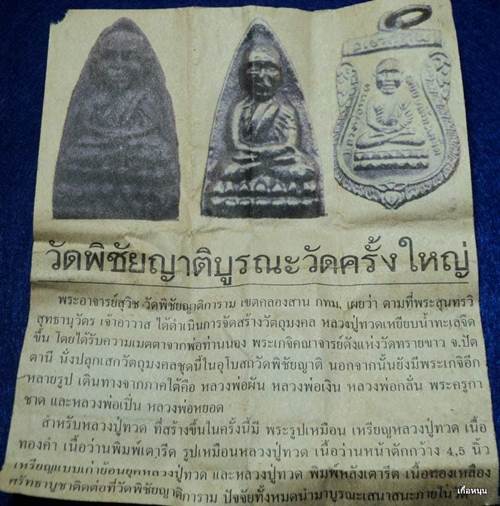 วัดพิชัยญาติบูรณะวัดครั้งใหญ่
พระอาจารย์สุวิช วัดพิชัยญาติการาม เขตคลองสาน กทม. เผยว่า ตามที่พระสุนทรวิ
สุทธานุวัตร เจ้าอาวาส ได้ดำเนินการจัดสร้างวัตถุมงคล หลวงปู่ทวดเหยียบน้ำทะเลจืด
ขึ้น โดยได้รับความเมตตาจากพ่อท่านนอง พระเกจิคณาจารย์ดังแห่งวัดทรายขาว จ.ปัต
ตานี นั่งปลุกเสกวัตถุมงคลชุดนี้ในอุโบสถวัดพิชัยญาติ นอกจากนั้นยังมีพระเกจิอีก
หลายรูป เดินทางจากภาคใต้คือ หลวงพ่อผัน หลวงพ่อเงิน หลวงพ่อกลั่น พระครูกา
ชาด และหลวงพ่อเปิ่น หลวงพ่อหยอด
สำหรับหลวงปู่ทวด ที่สร้างขึ้นในครั้งนี้มี พระรูปเหมือน เหรียญหลวงปู่ทวด เนื้อ
ทองคำ เนื้อว่านพิมพ์เตารีด รูปเหมือนหลวงปู่ทวด เนื้อว่านหน้าตักกว้าง 4.5 นิ้ว
เหรียญแบบเก่าย้อนยุคหลวงปู่ทวด และหลวงปู่ทวด พิมพ์หลังเตารีด เนื้อทองเหลือง
ศรัทธาบูชาติดต่อที่วัดพิชัยญาติการาม ปัจจัยทั้งหมดนำมาบูรณะเสนาสนะภายในวัด
เกื้อหนุน